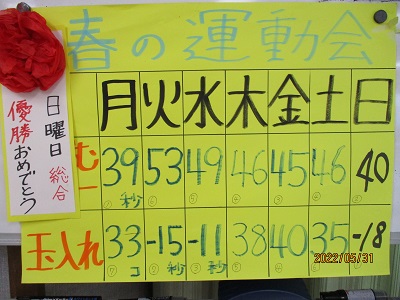 春の運動会
月 火 水 木 金 土 日
む 39秒 53 49 46 45 46 40
玉入れ 33コ -15秒 -11秒 38 40 35 -18
日曜日 総合
優勝おめでとう
2022/05/31